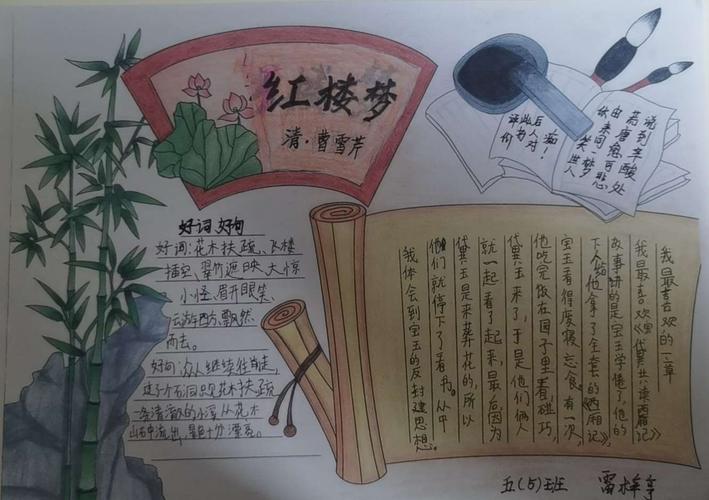 红楼梦
清·曹雪芹
说到辛酸处
荒唐愈可悲
由来同一梦
休笑世人
痴!
后人对
评价
好词好句
好词:花木扶疏、飞楼
插空 翠竹遮映 大惊
小怪 眉开眼笑、
云游四方 飘然
而去。
好句:众人继续往前走,
个石洞只见花木扶疏
一条清澈的小溪从花木
山石中流出,十分漂亮。
我最喜欢的一章
我最喜欢《黛玉共读西厢记》
故事讲的是宝玉学倦了,他的
下人给他拿了全套的《西厢记》
宝玉看得废寝忘食。有一次,
他吃完饭在园子里看,碰巧,
黛玉来了,于是他们俩人
就一起看了起来,最后因为
黛玉是来葬花的,所以
他们就停下了看书。从中
我体会到宝玉的反封建思想。
五(5)班 雷梓亭